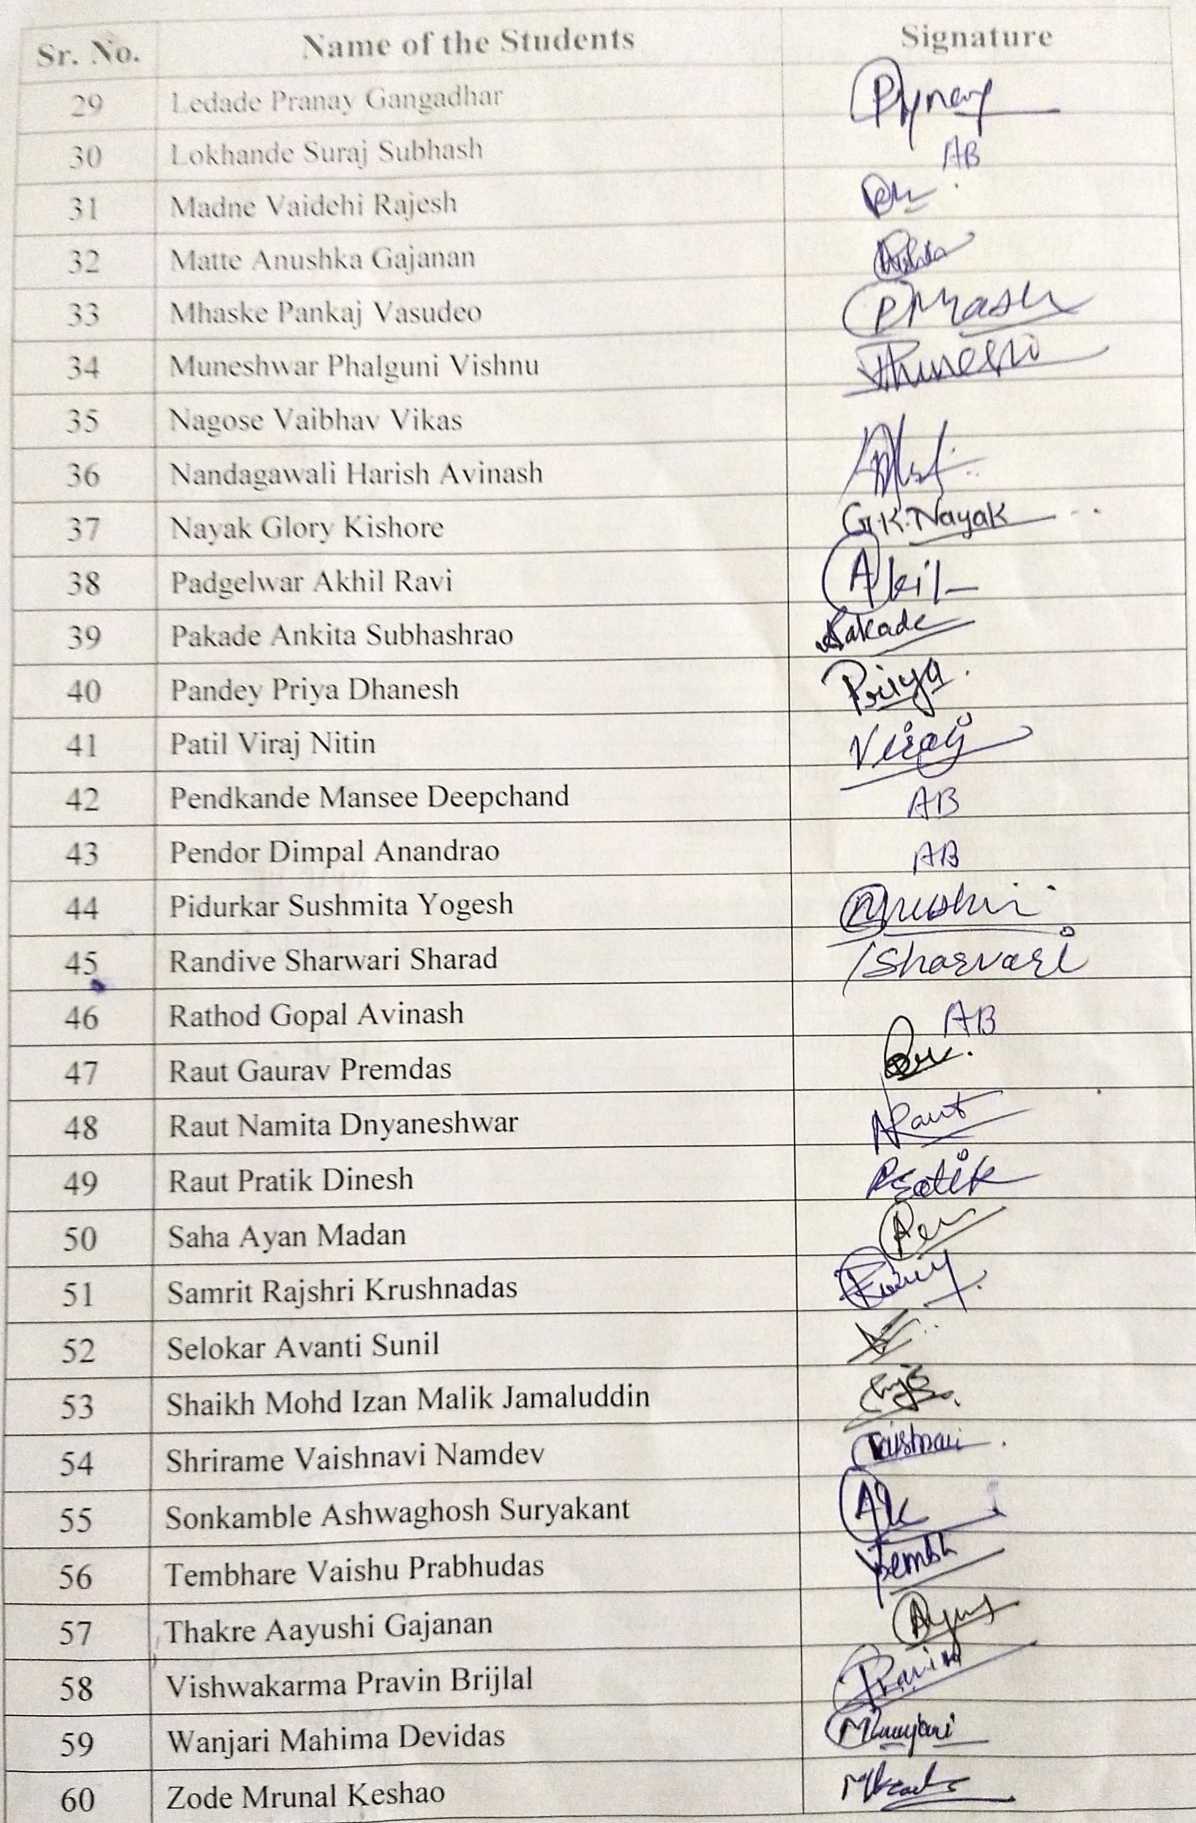 Sr. No. Name of the Students Signature
29 Ledade Pranay Gangadhar Pynay
30 Lokhande Suraj Subhash AB
31 Madne Vaidehi Rajesh
32 Matte Anushka Gajanan
33 Mhaske Pankaj Vasudeo
34 Muneshwar Phalguni Vishnu
35 Nagose Vaibhav Vikas
36 Nandagawali Harish Avinash
37 Nayak Glory Kishore G.K.Nayak
38 Padgelwar Akhil Ravi Akil
39 Pakade Ankita Subhashrao
40 Pandey Priya Dhanesh Priya
41 Patil Viraj Nitin Viraj
42 Pendkande Mansee Deepchand AB
43 Pendor Dimpal Anandrao AB
44 Pidurkar Sushmita Yogesh
45 Randive Sharwari Sharad Sharvari
46 Rathod Gopal Avinash AB
47 Raut Gaurav Premdas
48 Raut Namita Dnyaneshwar NRaut
49 Raut Pratik Dinesh Pratik
50 Saha Ayan Madan
51 Samrit Rajshri Krushnadas
52 Selokar Avanti Sunil
53 Shaikh Mohd Izan Malik Jamaluddin
54 Shrirame Vaishnavi Namdev
55 Sonkamble Ashwaghosh Suryakant
56 Tembhare Vaishu Prabhudas
57 Thakre Aayushi Gajanan
58 Vishwakarma Pravin Brijlal Pravin
59 Wanjari Mahima Devidas
60 Zode Mrunal Keshao